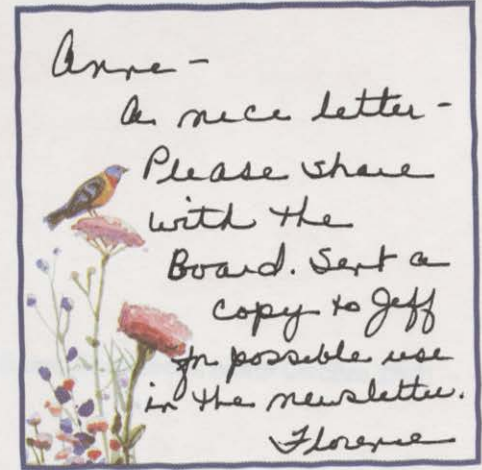 Anne -
A nice letter -
Please share
with the
Board. Sent a
copy to Jeff
for possible use
in the newsletter.
Florence